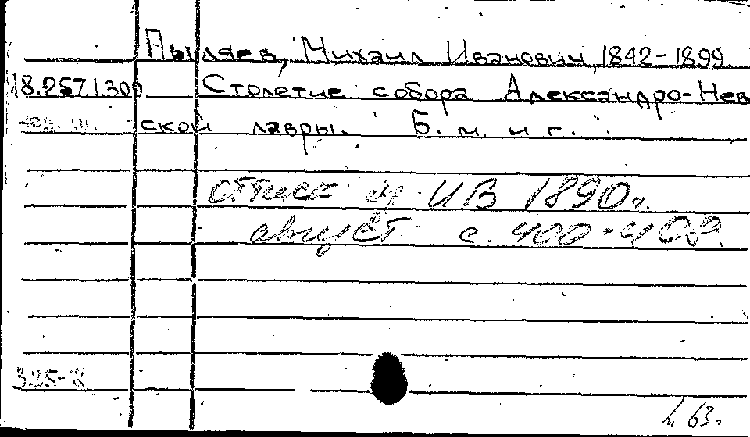 Пыляев, Михаил Иванович, 1842-1899
18.257.1.300 Столетие собора Александро-Нев
ской лавры. Б. м. и г.
оттиск из ИВ 1890 г.
август с. 400-409.
325-
63.